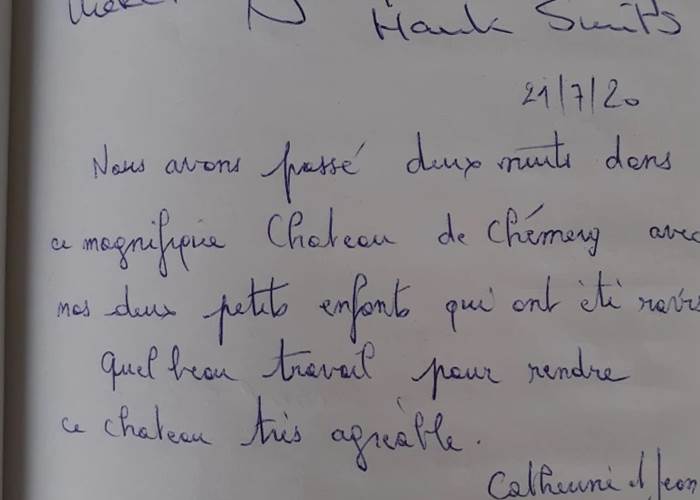 Hank Smits
21/7/20
Nous avons passé deux nuits dans
ce magnifique Chateau de Chémery avec
nos deux petits enfants qui ont été ravis
Quel beau travail pour rendre
ce chateau très agréable.
Catherine et Jean